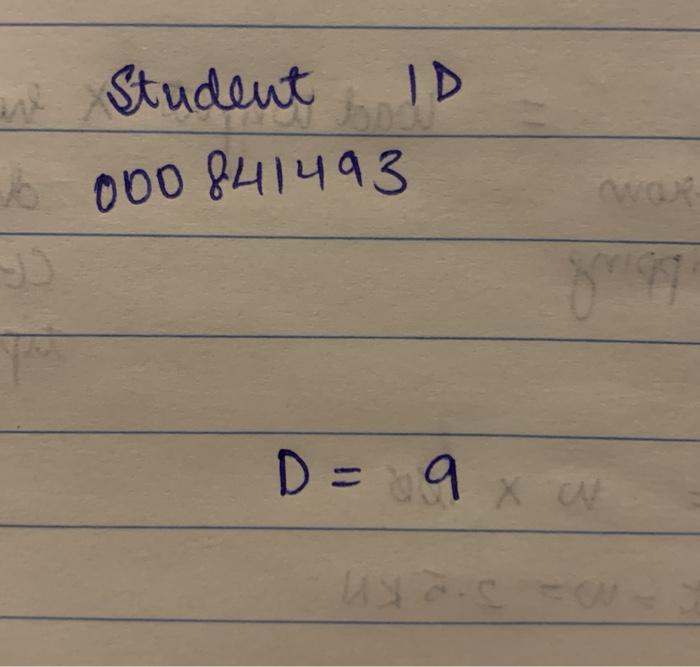 Student ID
000841493
D = 9